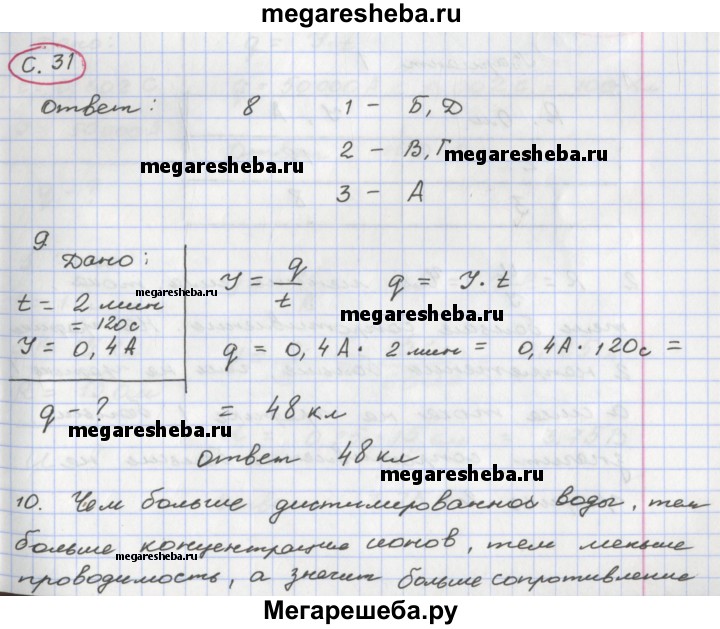 megaresheba.ru
с. 31
Ответ: 8 1 - Б, Д
megaresheba.ru
2 - В, Г
megaresheba.ru
3 - А
9
Дано:
t = 2 мин
= 120с
megaresheba.ru
У = 0,4А
q - ?
megaresheba.ru
У = q/t q = У·t
megaresheba.ru
q = 0,4А· 2 мин = 0,4А·120с =
= 48 кл
Ответ 48 кл
megaresheba.ru
10. Чем больше дистилированной воды, тем
megaresheba.ru
больше концентрация ионов, тем меньше
проводимость, а значит больше сопротивление
Мегарешеба.ру